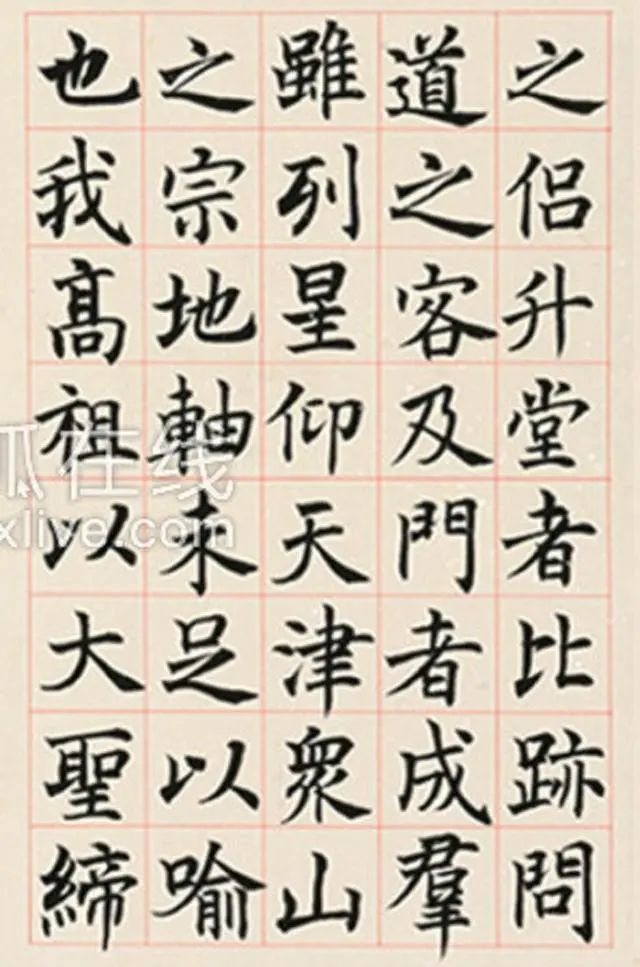 之侣升堂者比跡問
道之客及門者成羣
雖列星仰天津衆山
之宗地軸未足以喻
也我髙祖以大聖締
瓜在线
xlive.com